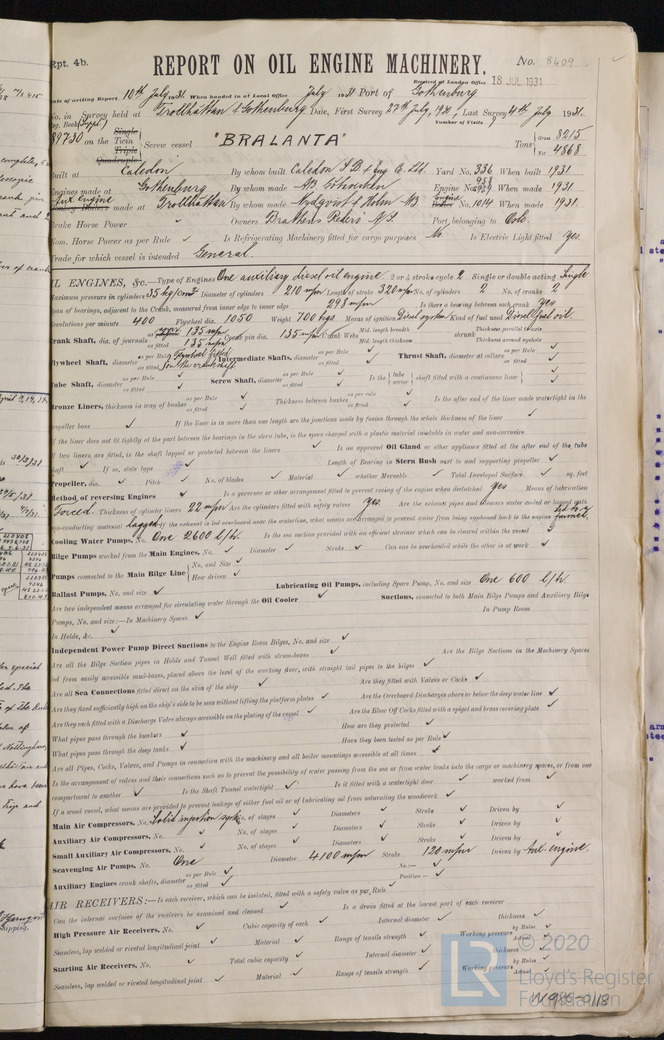 Rpt. 4b.
REPORT ON OIL ENGINE MACHINERY.
No. 8409
Received at London Office 18 JUL 1931
Date of writing Report 10th July 1931 When handed in at Local Office July 1931 Port of Gothenburg
No. in Survey held at Trollhättan & Gothenburg Date, First Survey 27th July, 1930, Last Survey 4th July 1931.
Reg. Book (Suppt)
Number of Visits
89730 on the Single Twin Triple Quadruple Screw vessel "BRALANTA" Tons Gross 8215 Net 4868
Built at Caledon By whom built Caledon S.B. & Eng. Co. Ltd. Yard No. 336 When built 1931
Engines made at Gothenburg By whom made Engine No. When made 1931
made at Trollhättan By whom made Nydqvist & Holm AB No. 1014 When made 1931.
Brake Horse Power Owners Brathens Rederi A/S Port belonging to Oslo.
Nom. Horse Power as per Rule Is Refrigerating Machinery fitted for cargo purposes No. Is Electric Light fitted Yes.
Trade for which vessel is intended General.
OIL ENGINES, &c.—Type of Engines One auxiliary diesel oil engine 2 or 4 stroke cycle 2 Single or double acting Single
Maximum pressure in cylinders 35 kg/cm² Diameter of cylinders 210 m/m Length of stroke 320 m/m No. of cylinders 2 No. of cranks 2
Span of bearings, adjacent to the Crank, measured from inner edge to inner edge 298 m/m Is there a bearing between each crank Yes
Revolutions per minute 400 Flywheel dia. 1050 Weight 700 kgs Means of ignition Diesel system Kind of fuel used Diesel fuel oil
Crank Shaft, dia. of journals as fitted 135 m/m Crank pin dia. 135 m/m Crank Webs Mid. length breadth Mid. length thickness shrunk Thickness parallel to axis Thickness around eyehole
Flywheel Shaft, diameter as per Rule as fitted Flywheel fitted on the crankshaft Intermediate Shafts, diameter as per Rule as fitted Thrust Shaft, diameter at collars as per Rule as fitted
Tube Shaft, diameter as per Rule as fitted Screw Shaft, diameter as per Rule as fitted Is the tube screw shaft fitted with a continuous liner
Bronze Liners, thickness in way of bushes as per Rule as fitted Thickness between bushes as per Rule as fitted Is the after end of the liner made watertight in the
propeller boss If the liner is in more than one length are the junctions made by fusion through the whole thickness of the liner
If the liner does not fit tightly at the part between the bearings in the stern tube, is the space charged with a plastic material insoluble in water and non-corrosive
If two liners are fitted, is the shaft lapped or protected between the liners Is an approved Oil Gland or other appliance fitted at the after end of the tube
shaft If so, state type Length of Bearing in Stern Bush next to and supporting propeller
Propeller, dia. Pitch No. of blades Material whether Moveable Total Developed Surface sq. feet
Method of reversing Engines Is a governor or other arrangement fitted to prevent racing of the engine when declutched Yes Means of lubrication
Forced. Thickness of cylinder liners 22 m/m Are the cylinders fitted with safety valves Yes. Are the exhaust pipes and silencers water cooled or lagged with
non-conducting material lagged If the exhaust is led overboard near the waterline, what means are arranged to prevent water from being syphoned back to the engine funnel.
Cooling Water Pumps, No. One 2600 l/h. Is the sea suction provided with an efficient strainer which can be cleared within the vessel
Bilge Pumps worked from the Main Engines, No. Diameter Stroke Can one be overhauled while the other is at work
Pumps connected to the Main Bilge Line No. and Size How driven
Ballast Pumps, No. and size Lubricating Oil Pumps, including Spare Pump, No. and size One 600 l/h
Are two independent means arranged for circulating water through the Oil Cooler Suctions, connected to both Main Bilge Pumps and Auxiliary Bilge
Pumps, No. and size:—In Machinery Spaces In Pump Room
In Holds, &c.
Independent Power Pump Direct Suctions to the Engine Room Bilges, No. and size
Are all the Bilge Suction pipes in Holds and Tunnel Well fitted with strum-boxes Are the Bilge Suctions in the Machinery Spaces
led from easily accessible mud-boxes, placed above the level of the working floor, with straight tail pipes to the bilges
Are all Sea Connections fitted direct on the skin of the ship Are they fitted with Valves or Cocks
Are they fixed sufficiently high on the ship's side to be seen without lifting the platform plates Are the Overboard Discharges above or below the deep water line
Are they each fitted with a Discharge Valve always accessible on the plating of the vessel Are the Blow Off Cocks fitted with a spigot and brass covering plate
What pipes pass through the bunkers How are they protected
What pipes pass through the deep tanks Have they been tested as per Rule
Are all Pipes, Cocks, Valves, and Pumps in connection with the machinery and all boiler mountings accessible at all times
Is the arrangement of valves and their connections such as to prevent the possibility of water passing from the sea or from water tanks into the cargo or machinery spaces, or from one
compartment to another Is the Shaft Tunnel watertight Is it fitted with a watertight door worked from
If a wood vessel, what means are provided to prevent leakage of either fuel oil or of lubricating oil from saturating the woodwork
Main Air Compressors, No. Solid injection syst. No. of stages Diameters Stroke Driven by
Auxiliary Air Compressors, No. No. of stages Diameters Stroke Driven by
Small Auxiliary Air Compressors, No. No. of stages Diameters Stroke Driven by
Scavenging Air Pumps, No. One Diameter 4100 m/m Stroke 120 m/m Driven by Aux. engine.
Auxiliary Engines crank shafts, diameter as per Rule as fitted No.:— Position:—
AIR RECEIVERS:—Is each receiver, which can be isolated, fitted with a safety valve as per Rule
Can the internal surfaces of the receivers be examined and cleaned Is a drain fitted at the lowest part of each receiver
High Pressure Air Receivers, No. Cubic capacity of each Internal diameter thickness
Seamless, lap welded or riveted longitudinal joint Material Range of tensile strength Working pressure by Rules Actual
Starting Air Receivers, No. Total cubic capacity Internal diameter thickness
Seamless, lap welded or riveted longitudinal joint Material Range of tensile strength Working pressure by Rules Actual
LR © 2020
Lloyd's Register
Foundation
W986-0118